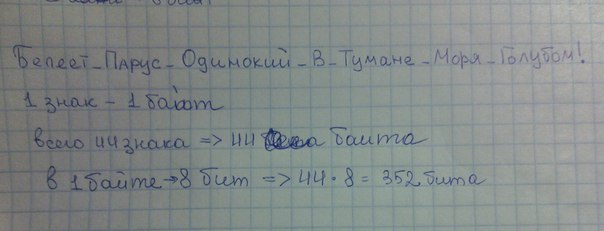 Белеет_Парус_Одинокий_В_Тумане_Моря_Голубом!
1 знак - 1 байт
всего 44 знака => 44 байта
в 1 байте → 8 бит => 44 · 8 = 352 бита